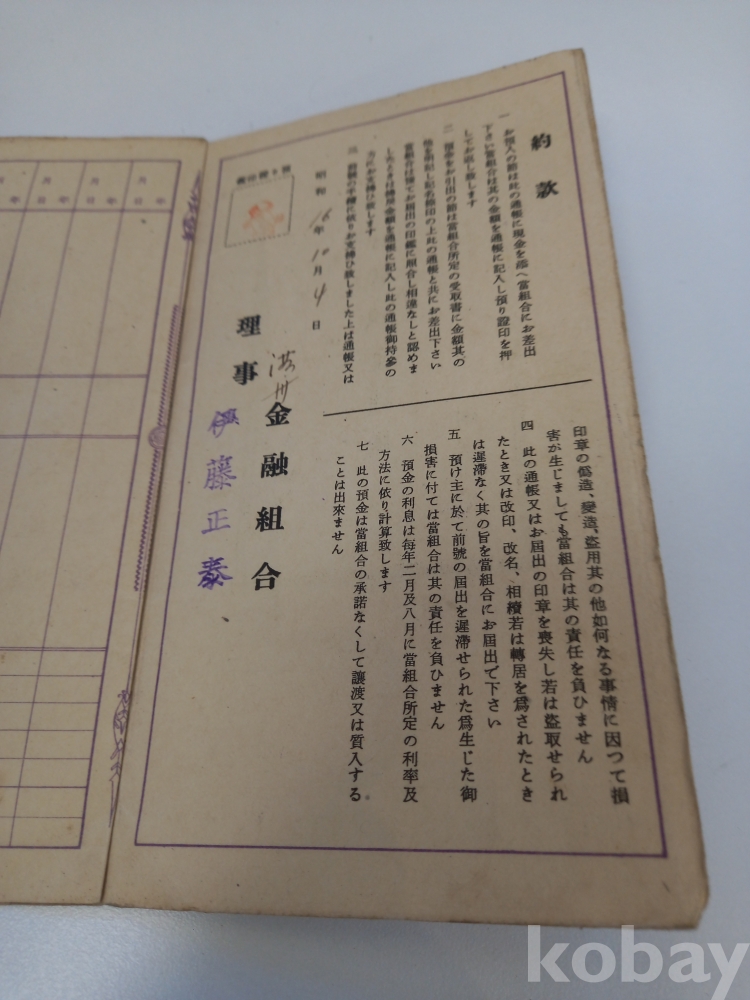 約款
一 お預入の節は此の通帳に現金を添へ當組合にお差出
下さい當組合は其の金額を通帳に記入し預り證印を押
してお返し致します
二 預金をお引出の節は當組合所定の受取書に金額其の
他を明記し記名捺印の上此の通帳と共にお差出下さい
當組合は豫てお屆出の印鑑に照合し相違なしと認めま
したときは拂戻金額を通帳に記入し此の通帳御持參の
方にお支拂ひ致します
三 前號の手續に依りお支拂ひ致しました上は通帳又は
印章の僞造、變造、盜用其の他如何なる事情に因つて損
害が生じましても當組合は其の責任を負ひません
四 此の通帳又はお屆出の印章を喪失し若は盜取せられ
たとき又は改印、改名、相續若は轉居を爲されたとき
は遲滯なく其の旨を當組合にお屆出で下さい
五 預け主に於て前號の屆出を遲滯せられた爲生じた御
損害に付ては當組合は其の責任を負ひません
六 預金の利息は每年二月及八月に當組合所定の利率及
方法に依り計算致します
七 此の預金は當組合の承諾なくして讓渡又は質入する
ことは出來ません
昭和16年10月4日
金融組合
理事 伊藤正泰
年 月 日
年 月 日
kobay